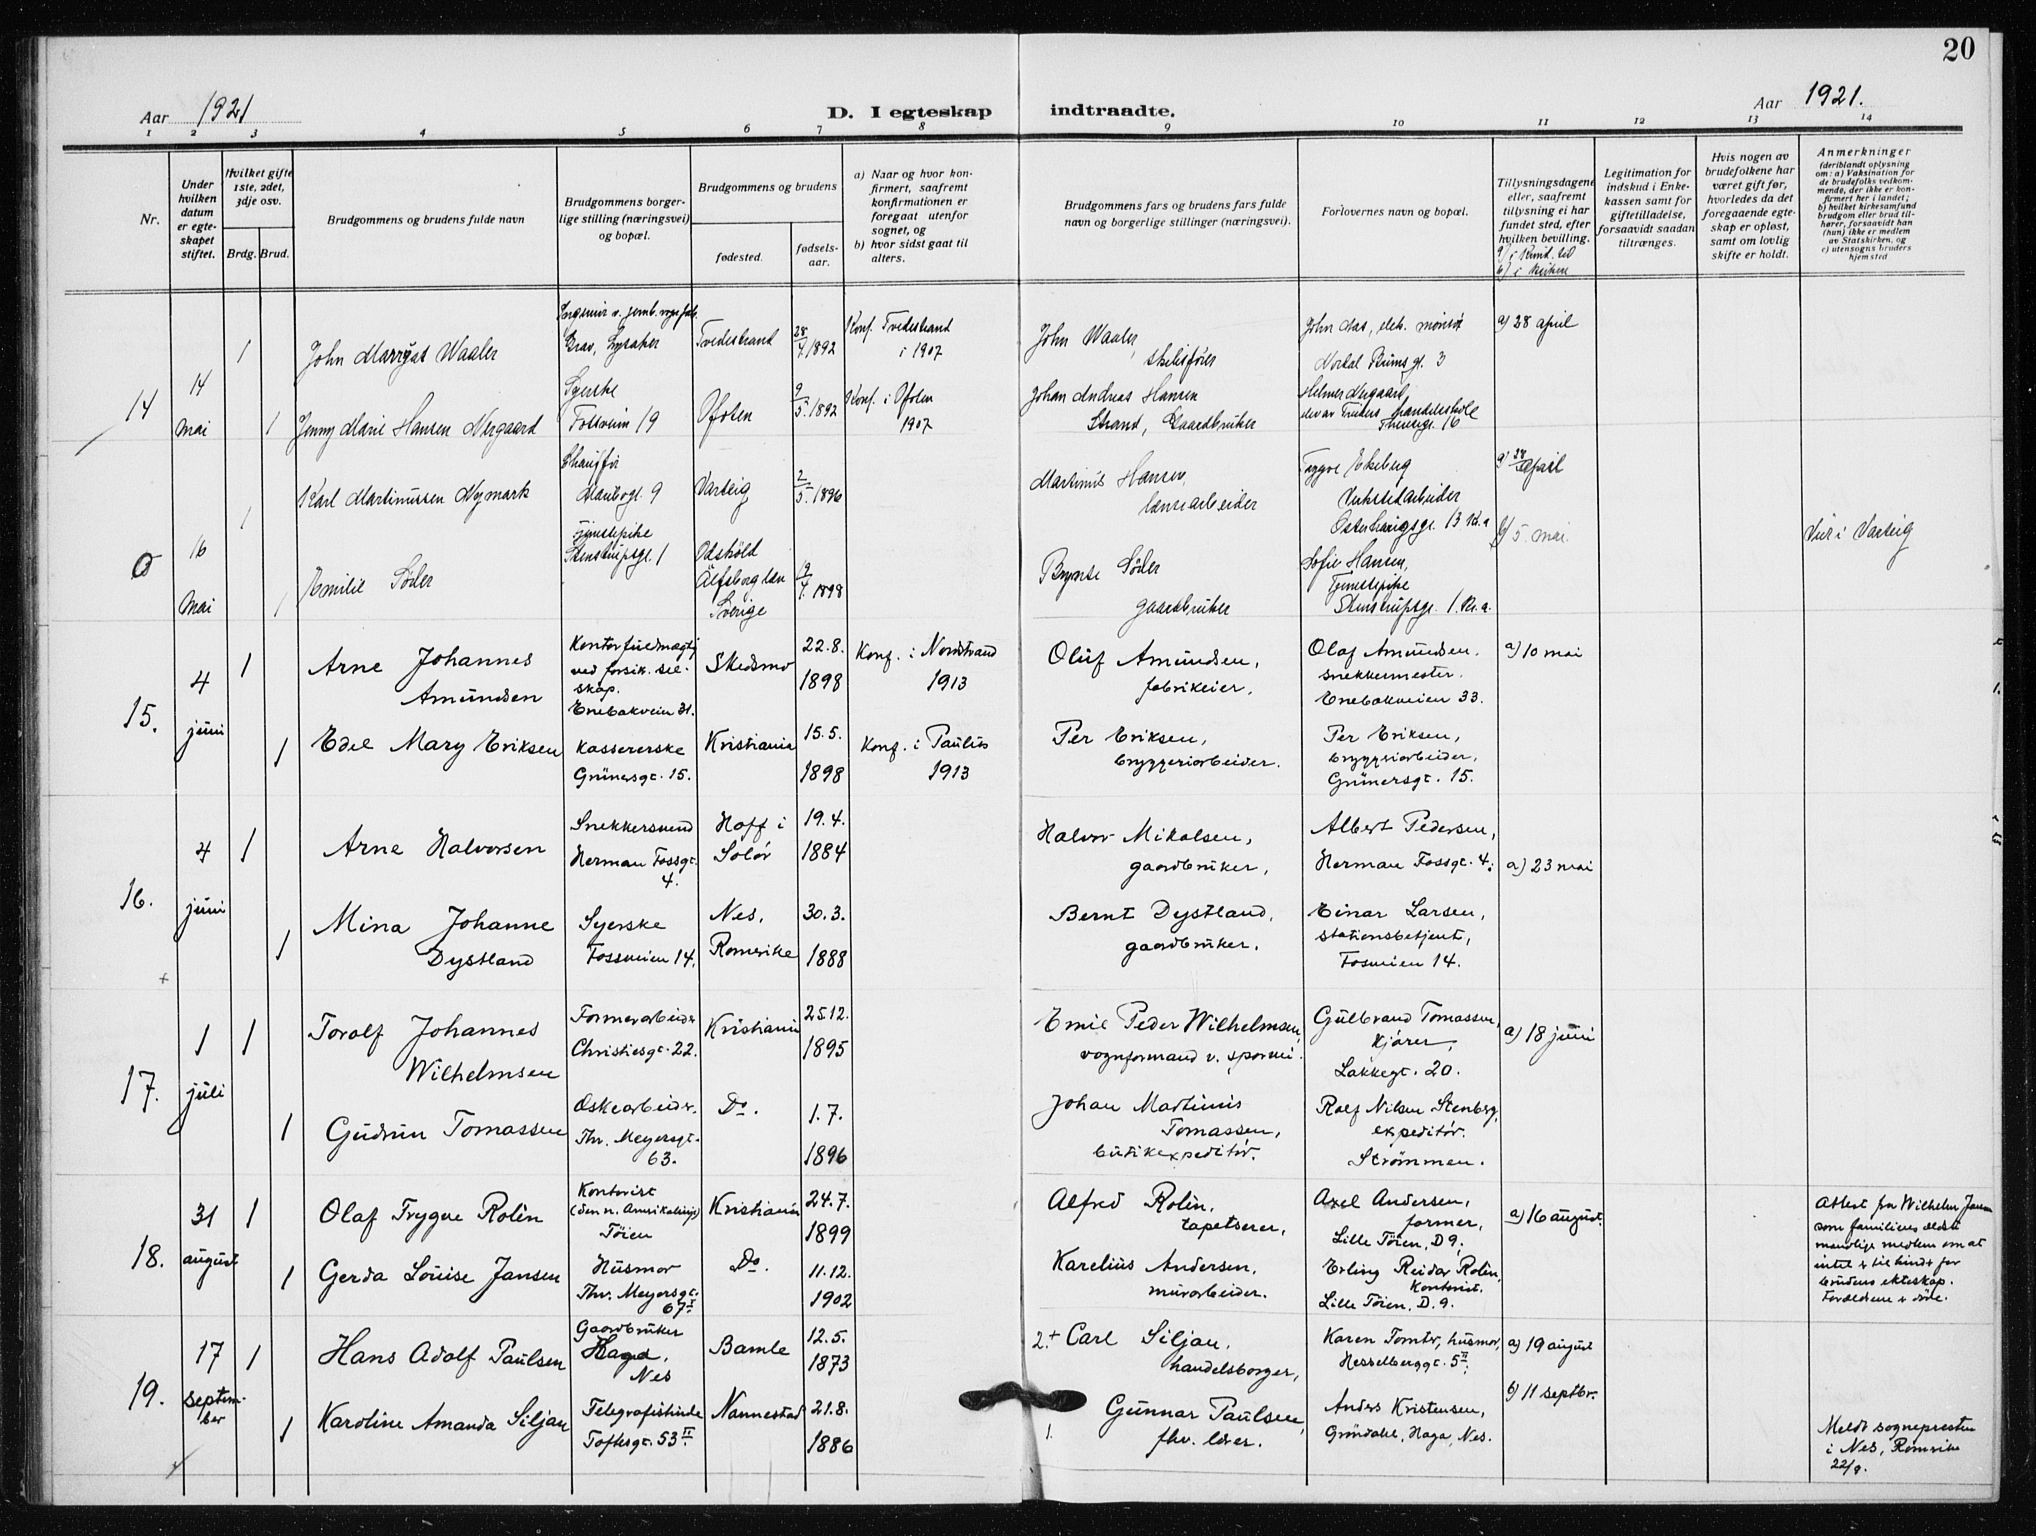 20
Aar 1921
D. I egteskap indtraadte.
Aar 1921.
1 2 3 4 5 6 7 8 9 10 11 12 13 14
Nr.
Under hvilken datum er egteskapet stiftet.
Hvilket gifte 1ste, 2det, 3dje osv.
Brdg. Brud.
Brudgommens og brudens fulde navn
Brudgommens borgerlige stilling (næringsvei) og bopæl.
Brudgommens og brudens
fødested.
fødselsaar.
a) Naar og hvor konfirmert, saafremt konfirmationen er foregaat utenfor sognet, og
b) hvor sidst gaat til alters.
Brudgommens fars og brudens fars fulde navn og borgerlige stillinger (næringsvei).
Forlovernes navn og bopæl.
Tillysningsdagene eller, saafremt tillysning ei har fundet sted, efter hvilken bevilling.
Legitimation for indskud i Enkekassen samt for giftetilladelse, forsaavidt saadan tiltrænges.
Hvis nogen av brudefolkene har været gift før, hvorledes da det foregaaende egteskap er opløst, samt om lovlig skifte er holdt.
Anmerkninger
(deriblandt oplysning om: a) Vaksination for de brudefolks vedkommende, der ikke er konfirmert her i landet; b) hvilket kirkesamfund brudgom eller brud tilhører, forsaavidt han (hun) ikke er medlem av Statskirken, og c) utensogns bruders hjemsted
14
14 mai
1
John Marryat Waaler
Grav, Lysaker
Tvedestrand
28/4 1892
Konf. Tvedestrand i 1907
John Waaler,
John
a) 28 april
1
Jenny Marie Hansen Nergaard
Syerske
Fossveien 19
Ofoten
9/5 1892
Konf. i Ofoten 1907
Johan Andreas Hansen Strand, Gaardbruker
Helmer Nergaard,
Handelsskole
16
0
16 Mai
1
Karl Martinussen Nymark
Chauffør
9
Varteig
2/5 1896
Martinus Hansen,
Trygve Ekeberg
Verkstedarbeider
Osterhausgt. 13 Kr.a
a) 28 april
b) 5. mai.
Viet i Varteig
1
Emilie Söder
Tjenestepike
Stenstrupsgt. 1
Ödsköld
Älfsborg län
Sverige
9/4 1898
Söder
gaardbruker
Sofie Hansen,
Tjenestepike
Stenstrupsgt. 1. Kr.a.
15.
4 juni
1
Arne Johannes Amundsen
Kontorfuldmægtig
ved forsik. selskap.
Enebakveien 31.
Skedsmo
22.8. 1898
Konf. i Nordstrand 1913
Oluf Amundsen, fabrikeier.
Olaf Amundsen, snekkermester.
Enebakveien 33.
a) 10 mai
1
Edel Mary Eriksen
Kassererske
Grünersgt. 15.
Kristiania
15.5. 1898
Konf. i Paulus 1913
Per Eriksen, bryggeriarbeider.
Per Eriksen, bryggeriarbeider,
Grünersgt. 15.
16.
4 juni
1
Arne Halvorsen
Snekkersvend
Herman Fossgt. 4.
Hoff i Solör
19.4. 1884
Halvor Mikalsen, gaardbruker,
Albert Pedersen,
Herman Fossgt. 4.
a) 23 mai
1
Mina Johanne Dystland
Syerske
Fossveien 14.
Nes, Romerike
30.3. 1888
Bernt Dystland, gaardbruker.
Einar Larsen, stationsbetjent,
Fosveien 14.
17.
1 juli
1
Torolf Johannes Wilhelmsen
Formerarbeider
Christiesgt. 22.
Kristiania
25.12. 1895
Emil Peder Wilhelmsen, vognformand v. sporvei.
Gulbrand Tomassen, kjører,
Lakkegt. 20.
a) 18 juni
1
Gudrun Tomassen
Æskearbeider.
Thv. Meyersgt. 63.
Do.
1.7. 1896
Johan Martinus Tomassen, butikexpeditör.
Rolf Nilsen Stenberg, expeditör.
Strömmen.
18.
31 august
1
Olaf Trygve Rolin
Kontorist
(den n. Amerikalinje)
Töien
Kristiania
24.7. 1899
Alfred Rolin, tapetserer,
Axel Andersen, former,
Lille Töien, D 9.
a) 16 august.
Attest fra Wilhelm Jansen som familiens ældste mandlige medlem om at intet er til hinder for brudens ekteskap. Forældrene er døde.
1
Gerda Louise Jansen
Husmor
Thv. Meyersgt. 67 I
Do.
11.12. 1902
Karelius Andersen, murarbeider.
Erling Reidar Rolin, kontorist.
Lille Töien, D. 9.
19.
17 september
1
Hans Adolf Paulsen
Gaardbruker
Haga, Nes
Bamle
12.5. 1873
2.+ Carl Siljan, handelsborger,
Karen Tomter, husmor,
Hesselberggt. 5 II
a) 19 august
b) 11 septbr.
1
Karoline Amanda Siljan
Telegrafistinde
Toftesgt. 53 II
Nannestad
21.8. 1886
1. Gunnar Paulsen, fhv. lærer.
Anders Kristensen,
Gröndahl, Haga, Nes.
Meldt sognepresten i Nes, Romerike 22/9.